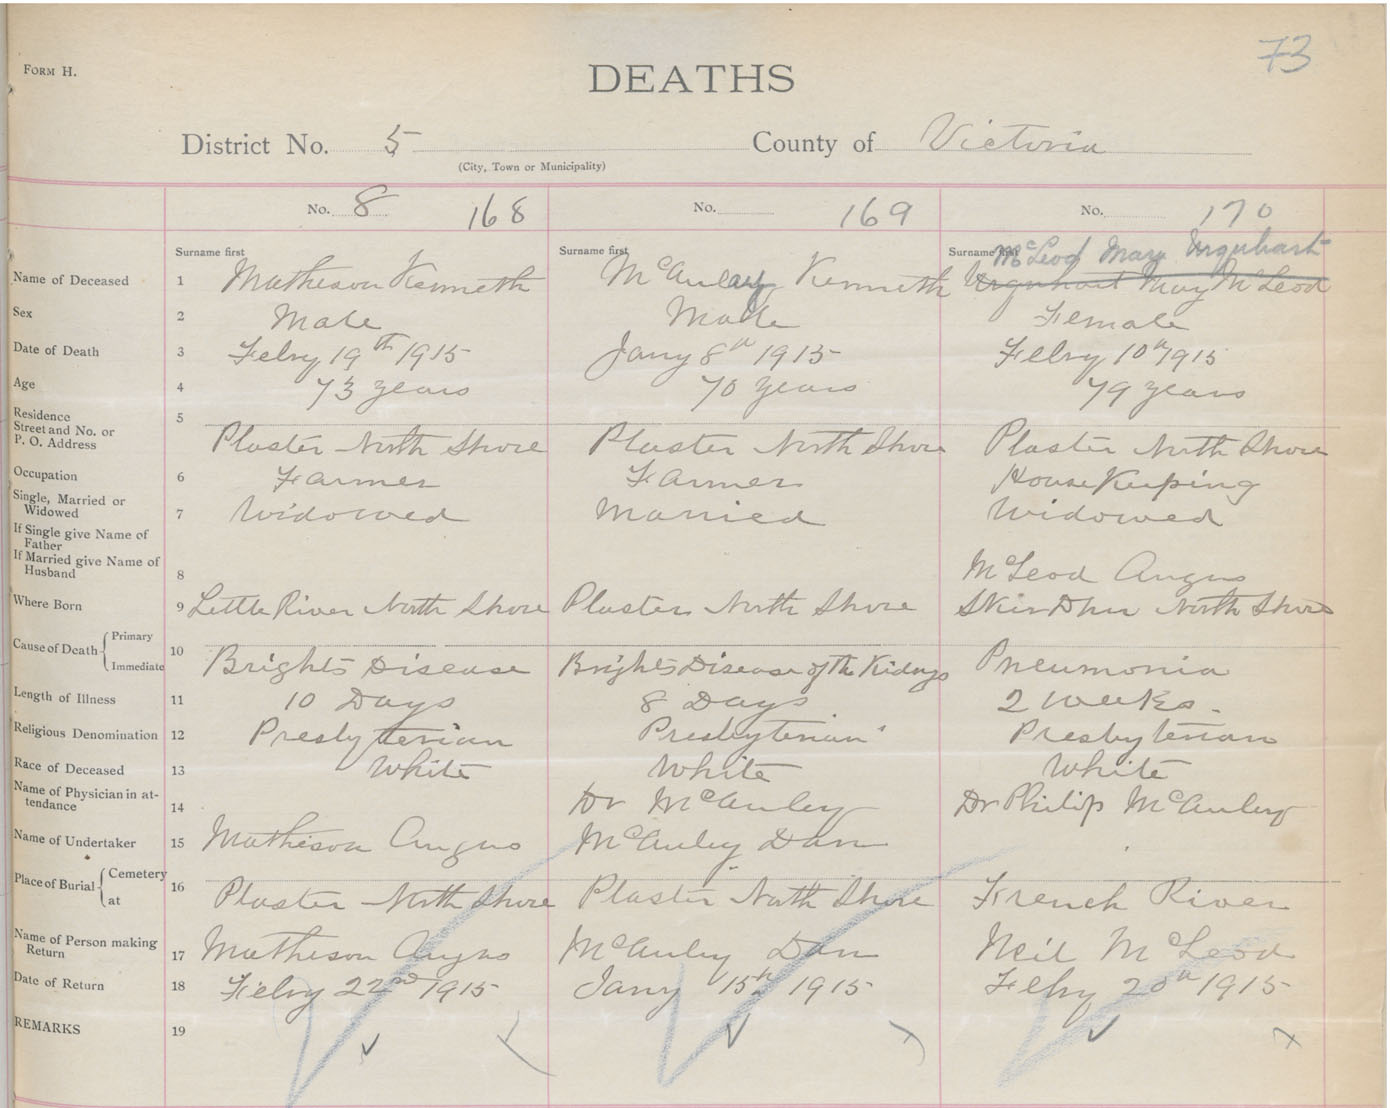 73
FORM H.
DEATHS
District No. 5 County of Victoria
(City, Town or Municipality)
No. 8 168 No. 169 No. 170
Surname first Surname first Surname first McLeod Mary Urquhart
Name of Deceased 1 Matheson Kenneth McAulay Kenneth Urquhart May McLeod
Sex 2 Male Male Female
Date of Death 3 Febry 19th 1915 Jany 8th 1915 Febry 10th 1915
Age 4 73 years 70 years 79 years
Residence 5
Street and No. or
P. O. Address Plaster North Shore Plaster North Shore Plaster North Shore
Occupation 6 Farmer Farmer House Keeping
Single, Married or
Widowed 7 Widowed Married Widowed
If Single give Name of
Father
If Married give Name of
Husband 8 McLeod Angus
Where Born 9 Little River North Shore Plaster North Shore Skir Dhu North Shore
Cause of Death { Primary 10
Immediate Brights Disease Brights Disease of the Kidnys Pneumonia
Length of Illness 11 10 Days 8 Days 2 weeks.
Religious Denomination 12 Presbyterian Presbyterian Presbyterian
Race of Deceased 13 White White White
Name of Physician in at-
tendance 14 Dr McAuley Dr Philip McAuley
Name of Undertaker 15 Matheson Angus McAuley Dan
Place of Burial { Cemetery 16
at Plaster North Shore Plaster North Shore French River
Name of Person making
Return 17 Matheson Angus McAuley Dan Neil McLeod
Date of Return 18 Febry 22nd 1915 Jany 15th 1915 Feby 20th 1915
REMARKS 19